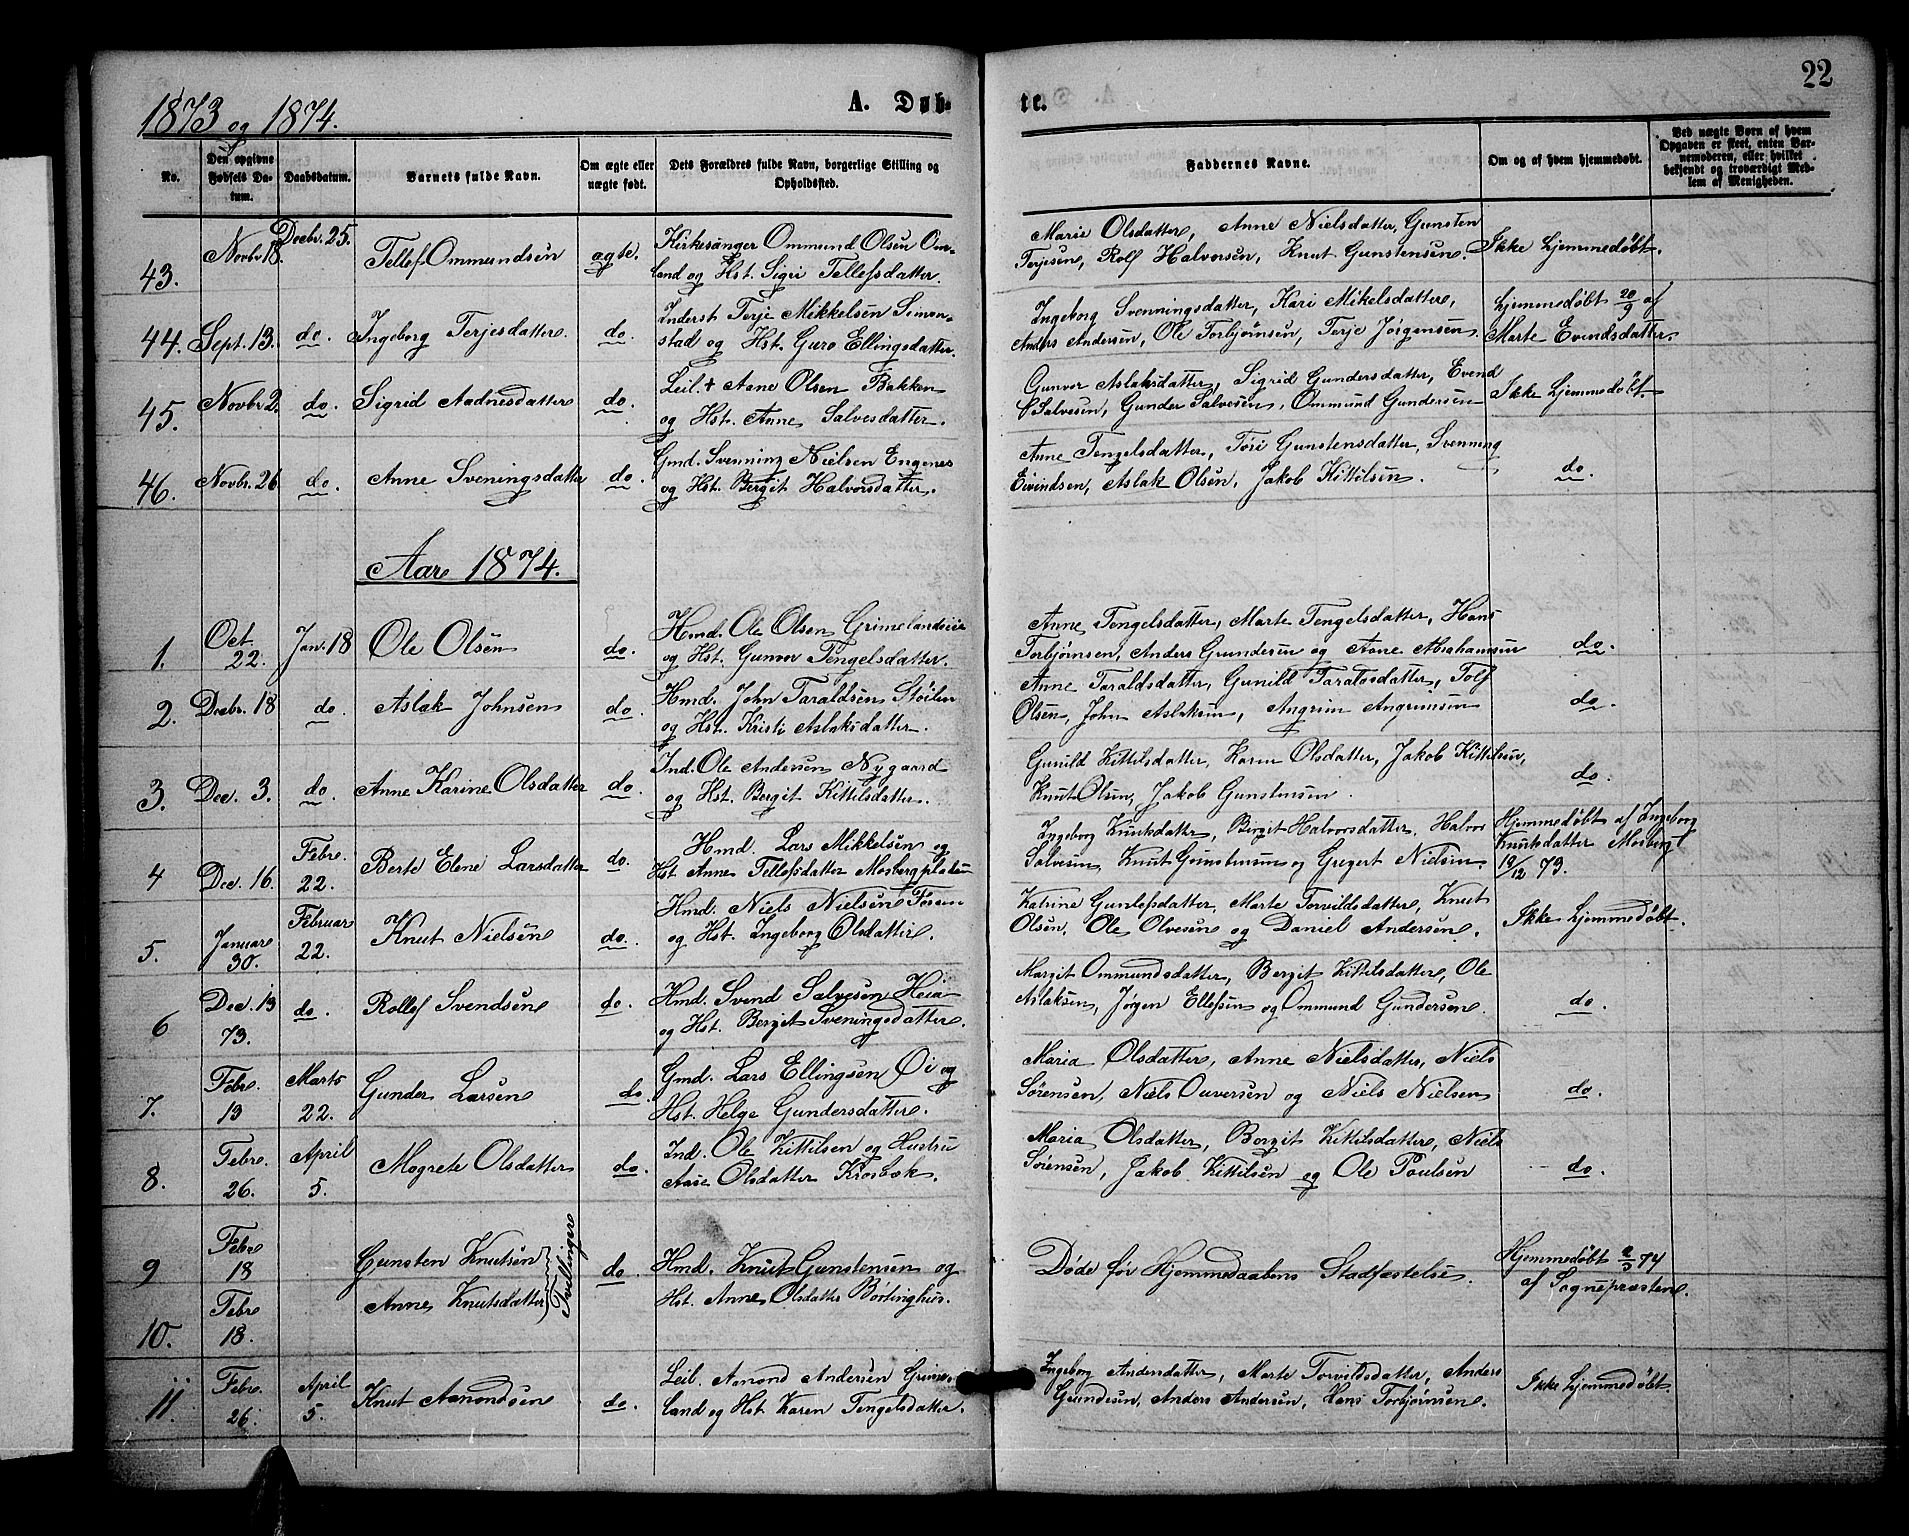 22
1873 og 1874.
A. Døb-
te.
No.
Den opgivne Fødsels Da-tum.
Daabsdatum.
Barnets fulde Navn.
Om ægte eller uægte født.
Dets Forældres fulde Navn, borgerlige Stilling og Opholdssted.
Faddernes Navne.
Om og af hvem hjemmedøbt.
Ved uægte Børn af hvem Opgaven er skeet, enten Bar-nemoderen, eller hvilket bekjendt og troværdigt Med-lem af Menigheden.
43. Novbr 18. Decbr. 25. Tellef Ommundsen ægte. Kirkesanger Ommund Olsen Om-
land og Hst. Sigri Tellefsdatter.
Marie Olsdatter, Anne Nielsdatter, Gunsten
Terjesen, Rolf Halvorsen, Knut Gunstensen. Ikke hjemmedøbt.
44. Sept. 13. do. Ingeborg Terjesdatter. do. Inderst Terje Mikkelsen Simon-
stad og Hst. Guro Ellingsdatter.
Ingeborg Svenningsdatter, Kari Mikelsdatter,
Anders Andersen, Ole Torbjønsen, Terje Jørgensen.
hjemmedøbt 20/9 af
Marte Evendsdatter.
45. Novbr 2. do. Sigrid Aadnesdatter do. Leil. + Aane Olsen Bakken
og Hst. Anne Salvesdatter.
Gunvor Aslaksdatter, Sigrid Gundersdatter, Evend
Salvesen, Gunder Salvesen, Ommund Gundersen Ikke hjemmedøbt.
46. Novbr. 26 do. Anne Sveningsdatter do. Gmd. Svenning Nielsen Engenes
og Hst. Bergit Halvorsdatter.
Anne Tengelsdatter, Tøri Gunstensdatter, Svenning
Eivindsen, Aslak Olsen, Jakob Kittilsen. do.
Aar 1874.
1. Oct. 22. Jan. 18 Ole Olsen do. Hmd. Ole Olsen Grimelandseie
og Hst. Gunvor Tengelsdatter.
Anne Tengelsdatter, Marte Tengelsdatter, Hans
Torbjønsen, Anders Gundesen og Anne Abrahamsen do.
2. Decbr. 18 do. Aslak Johnsen do. Hmd. John Taraldsen Støilen
og Hst. Kristi Aslaksdatter.
Anne Taraldsdatter, Gunild Taraldsdatter, Tolf
Olsen, John Aslaksen, Angrim Angrimsen do.
3. Dec. 3. do. Anne Karine Olsdatter do. Ind. Ole Andersen Nygaard
og Hst. Bergit Kittilsdatter.
Gunild Kittilsdatter, Karen Olsdatter, Jakob Kittilsen,
Knut Olsen, Jakob Gunstensen. do.
4 Dec. 16. Febr. 22. Berte Elene Larsdatter do. Hmd. Lars Mikkelsen og
Hst Anne Tellefsdatter Mosbergpladsen
Ingeborg Knutsdatter, Birgit Halvorsdatter, Halvor
Salvesen, Knut Gunstensen og Gregert Nielsen
Hjemmedøbt af Ingeborg
Knutsdatter Mosberg
19/12 73.
5. Januar 30. Februar 22. Knut Nielsen do. Hmd. Niels Nielsen Fossen
og Hst. Ingeborg Olsdatter.
Katrine Gunlefsdatter, Marte Torvildsdatter, Knut
Olsen, Ole Olvesen og Daniel Andersen. Ikke hjemmedøbt.
6 Dec. 13 73. do. Rollef Svendsen do. Hmd. Svend Salvesen Heia
og Hst. Bergit Sveningsdatter.
Margit Ommundsdatter, Bergit Kittilsdatter, Ole
Aslaksen, Jørgen Ellefsen og Ommund Gundersen. do.
7. Febr. 13 Marts 22. Gunder Larsen do. Gmd. Lars Ellingsen Øi og
Hst. Helge Gundersdatter.
Maria Olsdatter, Anne Nielsdatter, Niels
Sørensen, Niels Ouversen og Niels Nielsen do.
8. Febr. 26. April 5. Mogrete Olsdatter do. Ind. Ole Kittilsen og Hustru
Aase Olsdatter Krosbek
Maria Olsdatter, Bergit Kittilsdatter, Niels
Sørensen, Jakob Kittilsen og Ole Poulsen do.
9 Febr 18 Gunsten Knutsen Tvillinger do. Hmd. Knut Gunstensen og
10. Febr 18. Anne Knutsdatter Hst. Anne Olsdatter Børtinghus.
Døde før Hjemmedaabens Stadfæstelse.
Hjemmedøbt 2/3 74
af Sognepræsten.
11. Febr. 26. April 5. Knut Aamondsen do. Leil. Aamond Andersen Grime-
land og Hst Karen Tengelsdatter.
Ingeborg Andersdatter, Marte Torvildsdatter, Anders
Gundesen, Anders Andersen, Hans Torbjørnsen. Ikke hjemmedøbt